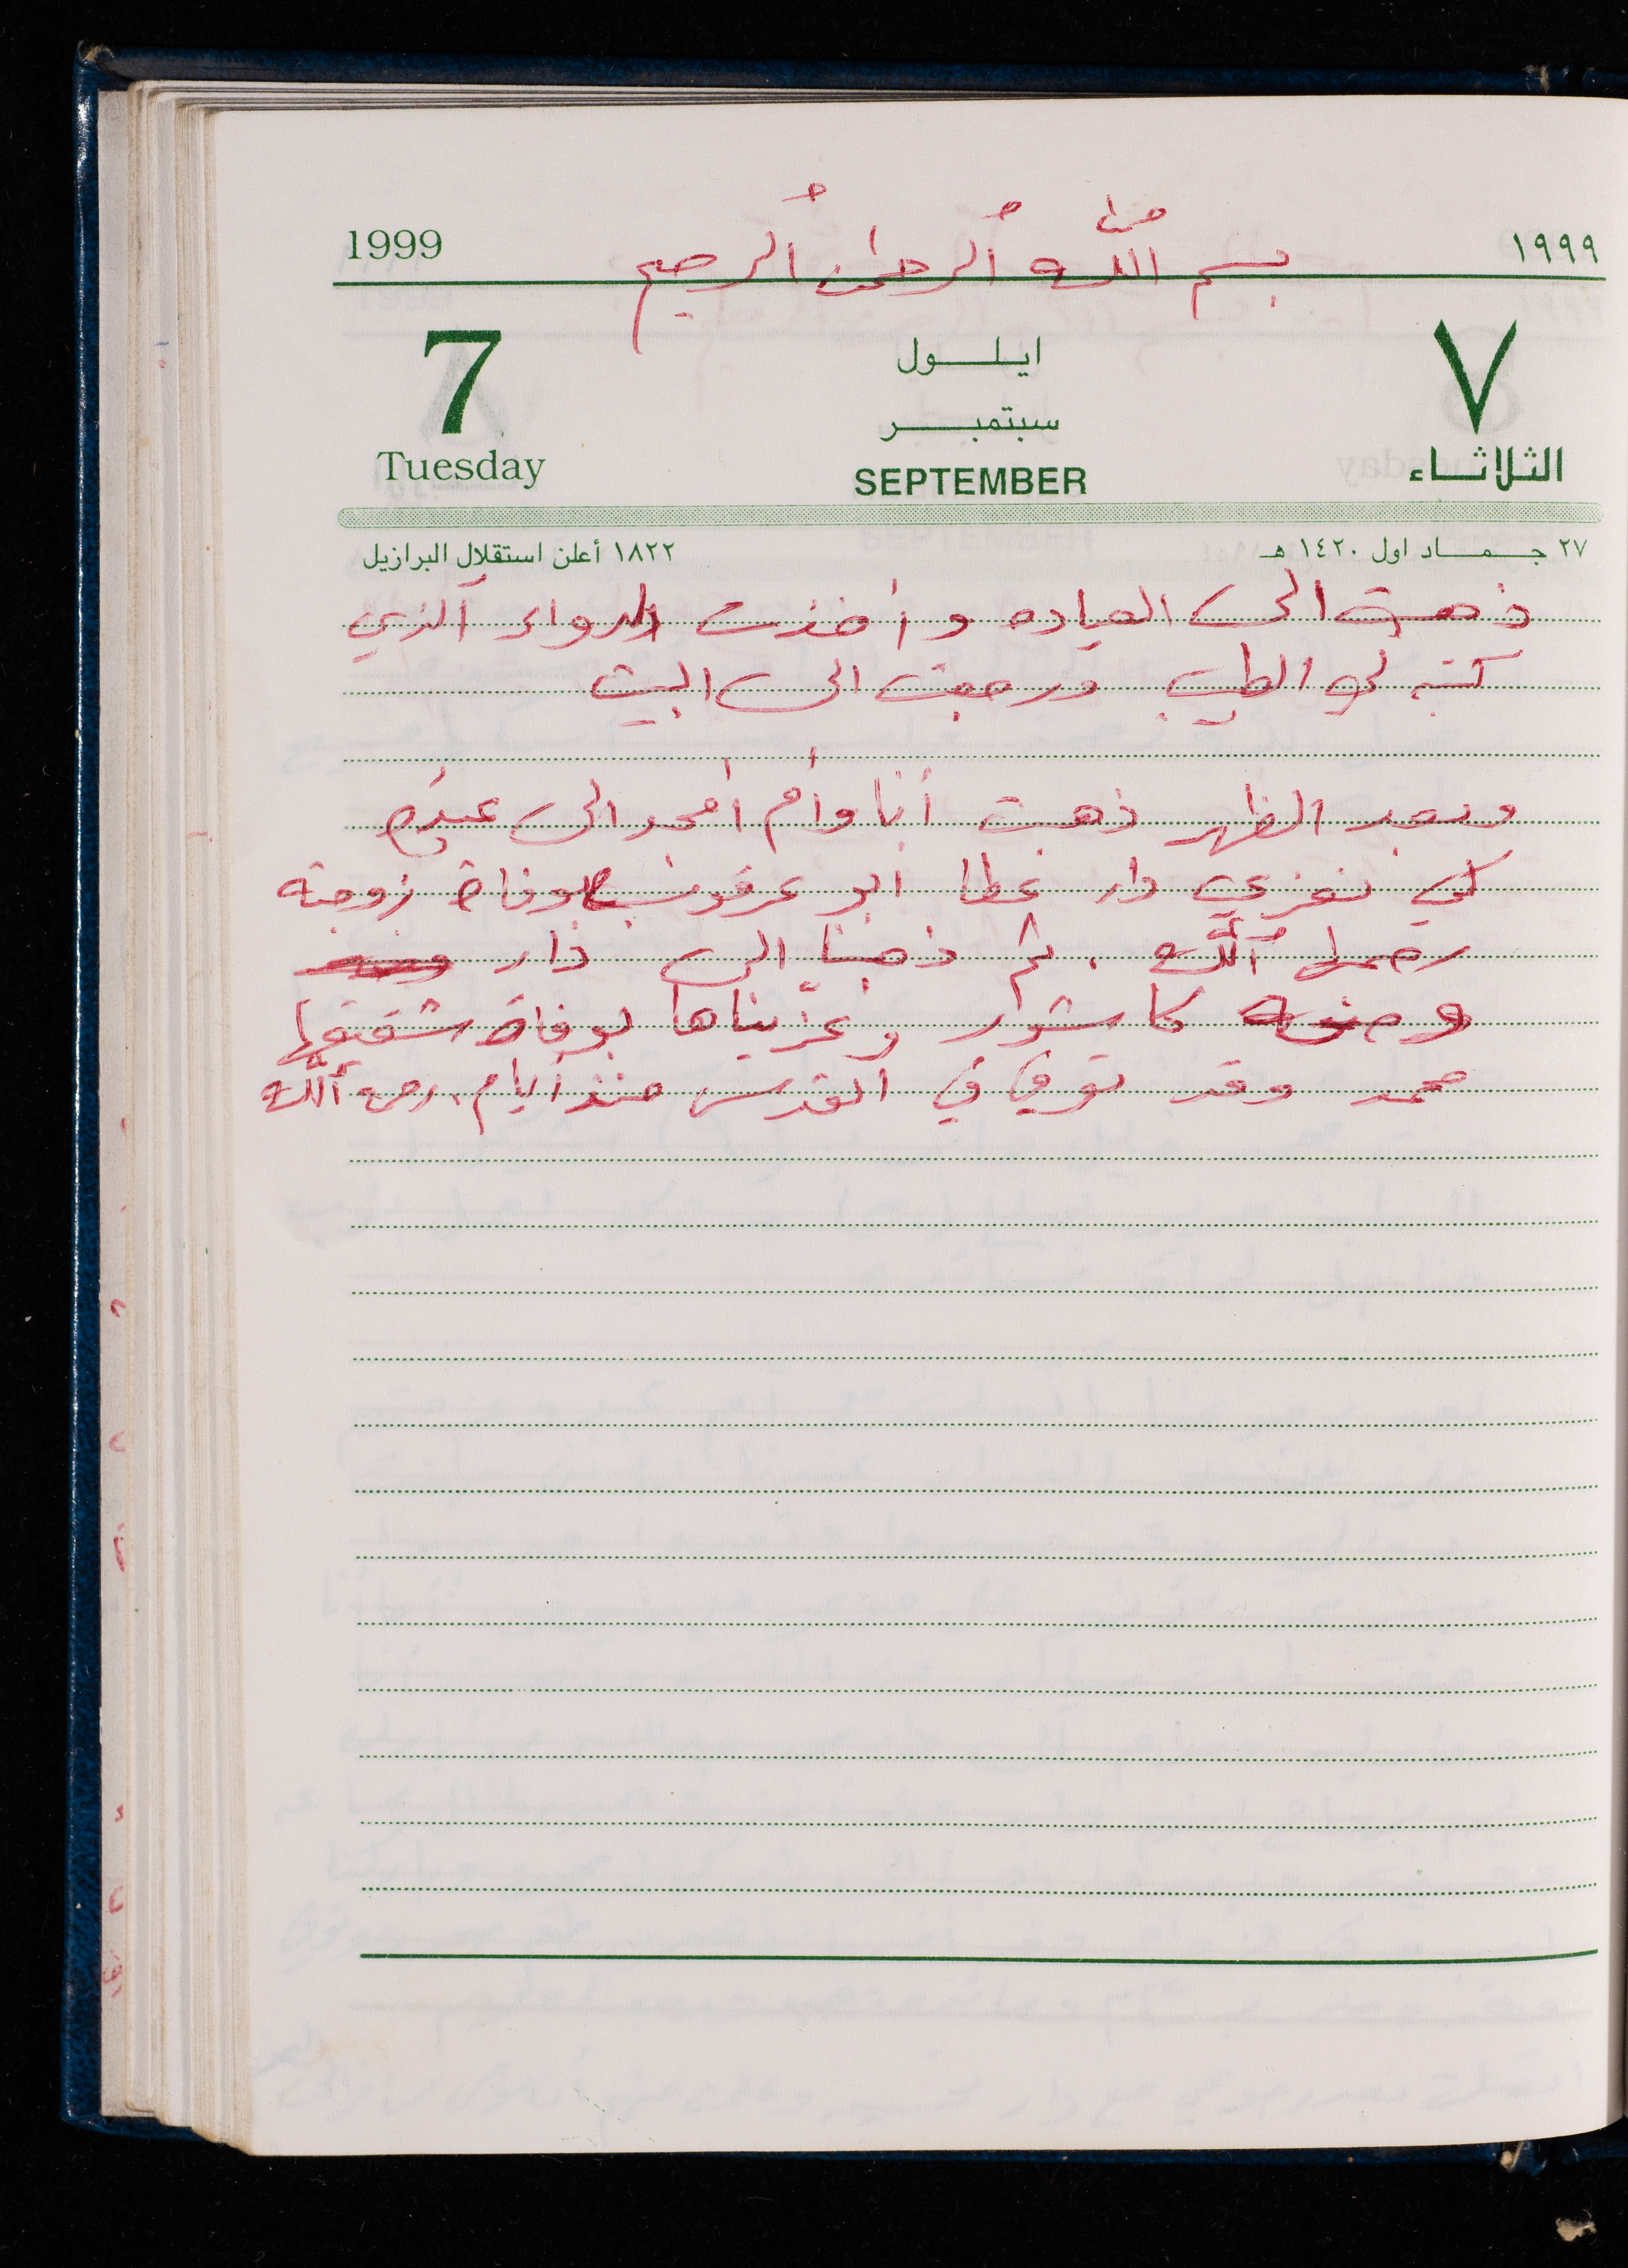 بسم الله الرحمن الرحيم
1999 ١٩٩٩
7 ايلول ٧
سبتمبر
Tuesday SEPTEMBER الثلاثاء
٢٧ جماد اول ١٤٢٠ هـ ١٨٢٢ أعلن استقلال البرازيل
ذهبت الى العياده وأخذت الدواء الذي
كتبه لي الطبيب ورجعت الى البيت
وبعد الظهر ذهبت أنا وأم أمجد الى
لكي نعزي دار عطا ابو عرقوب بوفاة زوجته
رحمها الله . ثم ذهبنا الى دار
وعزيناها بوفاة شقيقها
محمد وقد توفي في القدس منذ أيام . رحمه الله